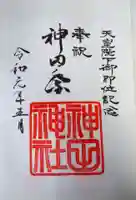 天皇陛下御即位記念
奉祝
神田祭
神田神社
令和元年五月